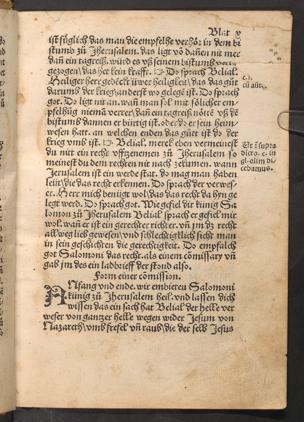 Blat v
ist füglich das man die empfelhe verhör in dem bi
stumb zu Jherusalem. das ligt vö dañen nit mer
dañ ein tagreiß. würd es vß seinem bistumb
gezogen/ das het kein krafft. Do sprach Belial.
Heiliger herr gedēck üwer heiligkeit/ das das gůt
darumb der krieg/ anderst wo gelegē ist. Do sprach
got. Do ligt nit an. wañ man sol mit sölicher em
pfelhūg niemā verrer/ dañ ein tagreiß
bistumbs dannen er bürtig ist. oder do er sein hem
wesen hatt. an welchen enden das gůt ist do der
krieg vmb ist. Belial. mercks eben vermeinest
du mir ein recht vffzenemen zů Jherusalem so
meinest du dem rechten nit nach zekumen. wann
Jerusalem ist ein werde stat. do mag man haben
leüt/ die das recht erkennen. Do sprach der verwes
er. Herr mich benügt wol/ das das recht da hyn ge
legt werd. Do sprach got. Wie gefiel dir künig Sa
lomon zů Jherusalem Belial sprach er gefiel mir
wol. wañ er ist ein gerechter richter. vñ im dz recht
allweg lieb gewesen/ vnd schlechtiglich sicht man
in sein geschichten die gerechtigkeit. Do empfalch
got Salomoni das recht. als einem cōmissary vñ
gab im des ein ladbrieff der stond also.
Form einer cōmission.
ANfang vnd ende. wir embieten Salomoni
künig zů Jherusalem heil. vnd lassen dich
wissen das ein sach hat Belial der helle ver
weser von gantzer helle wegen wider Jesum von
Nazareth/ vmb fresel vñ raub/ die der selb Jesus